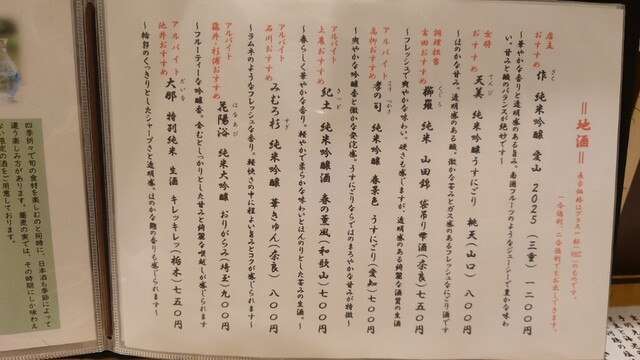 ＝地酒＝
表示価格はグラス一杯
のものです。
一合徳利、二合徳利でもお出しできます。
店主
おすすめ
作 純米吟醸 愛山 2025（三重）一二〇〇円
ざく
～華やかな香りと透明感のある旨み。南洲フルーツのようなジューシーで豊かな味わ
い。甘みと酸のバランスが絶妙です～
女将
おすすめ
天美 純米吟醸うすにごり 桃天（山口）八〇〇円
てんび
～ほのかな甘み。透明感のある酸。微かな苦みとガス感のあるフレッシュなにごり酒です
調理担当
吉田おすすめ
櫛羅 純米 山田錦 袋吊り雫酒（奈良）七五〇円
くじら
～フレッシュで爽やかな味わい。硬さも感じますが、透明感のある綺麗な酒質の生酒
アルバイト
高柳おすすめ
孝の司 純米吟醸 春景色 うすにごり（愛知）七〇〇円
こうのつかさ
～爽やかな吟醸香と微かな発泡感。うすにごりならではのまろやかな甘みが特徴～
アルバイト
上農おすすめ
紀土 純米吟醸酒 春の薫風（和歌山）七〇〇円
きっど
～春らしく華やかな香り。軽やかで柔らかな味わいとほんのりとした苦みの生酒。～
アルバイト
石川おすすめ
みむろ杉 純米吟醸 華きゅん（奈良）八〇〇円
すぎ
～ラムネのようなフレッシュな香り。軽快さの中に程よい旨みとコクが感じられます～
アルバイト
藤井・杉浦おすすめ
花陽浴 純米大吟醸 おりがらみ（埼玉）九〇〇円
はなあび
～フルーティーな吟醸香。含むとしっかりとした甘みと綺麗な喉越しが感じられます
アルバイト
池井おすすめ
大那 特別純米 生酒 キレッキレッ（栃木）七五〇円
だいな
～輪郭のくっきりとしたシャープさと透明感。ほのかな麹の香りも感じてられます～
四季折々で旬の食材を楽しむのと同時に、日本酒も季節によって
違う楽しみ方があります。蕎麦の実では、その時期にしか味わえ
ない限定の酒をご用意しております。